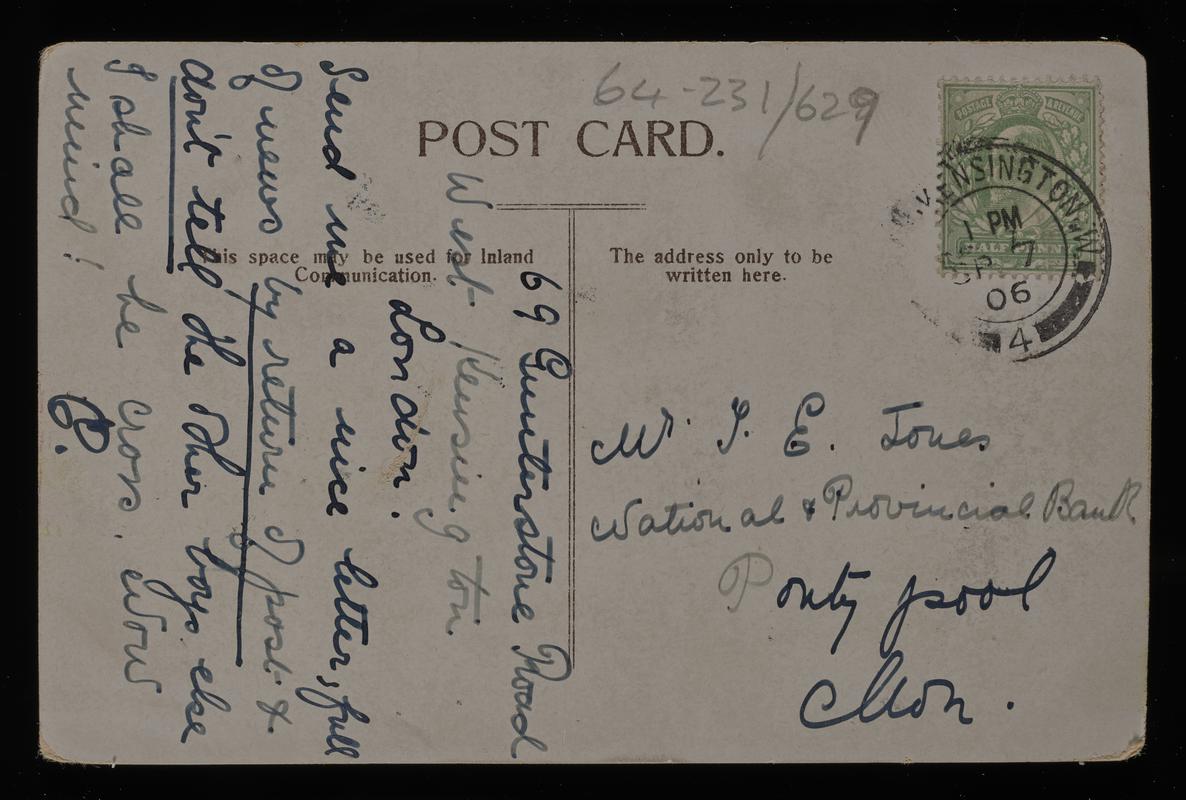 64-231/629
POST CARD.
This space may be used for Inland
Communication.
The address only to be
written here.
POSTAGE & REVENUE
HALFPENNY
KENSINGTON. W.
1 PM
SP 7
06
4
69 Gunterstone Road
West Kensington.
London.
Send me a nice letter, full
of news by return of post &
don't tell the other boys else
I shall be cross. Now
mind!
Mr. I. E. Jones
National & Provincial Bank
Pontypool
Mon.